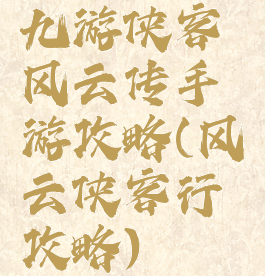 九游侠客
风云传手
游攻略(风
云侠客行
攻略)